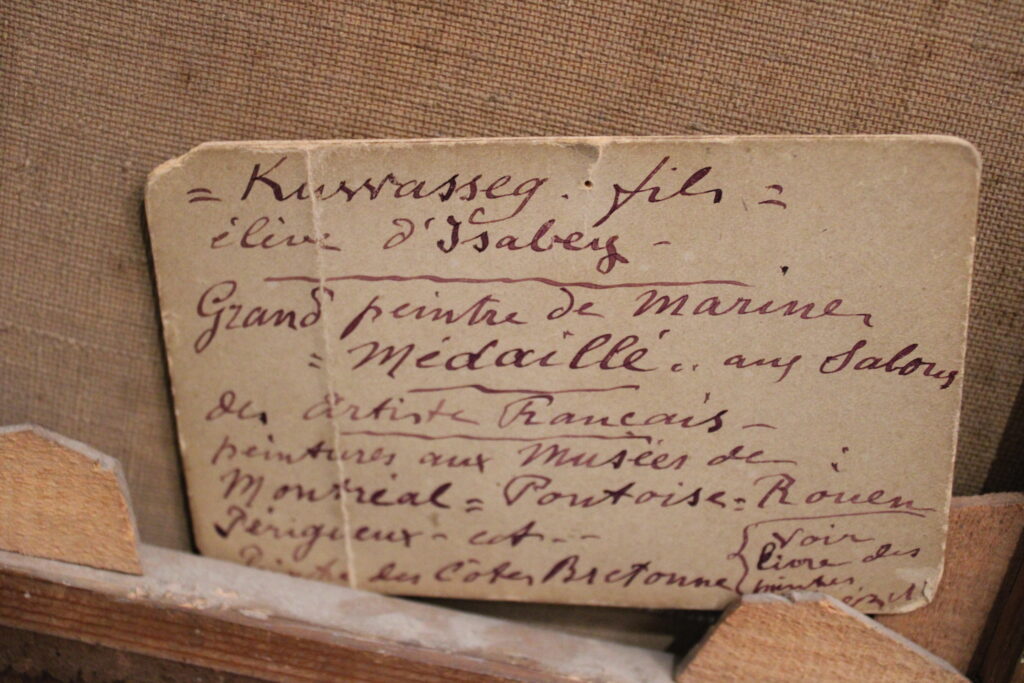 = Kuwasseg. fils =
élève d'Isabey -
Grand peintre de Marines
= Médaillé.. aux Salons
des Artiste Francais -
peintures aux Musées de :
Montréal = Pontoise = Rouen
Périgueux - ect --
Peintre des Côtes Bretonne
{ Voir
livre des
peintres